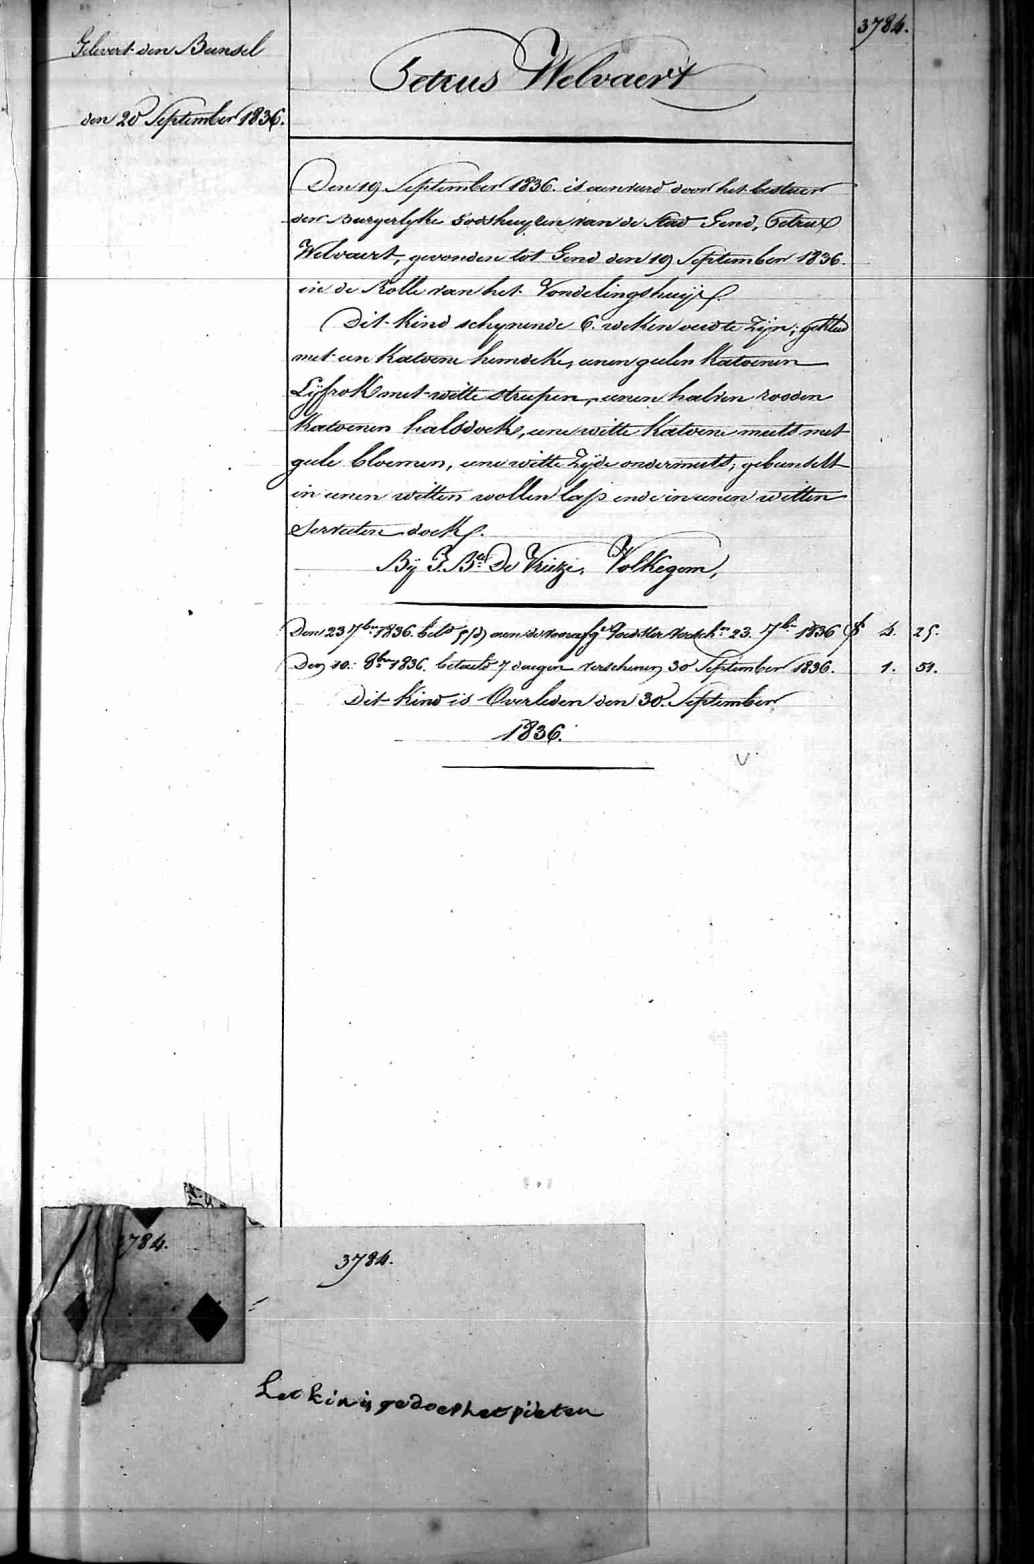 3784.
Gelevert den Bunsel
den 20 September 1836.
Petrus Welvaert
Den 19 September 1836. is aenveird door het bestuer
der Burgerlyke Godshuyzen van de Stad Gend, Petrus
Welvaert, gevonden tot Gend den 19 September 1836.
in de Rolle van het Vondelingshuys.
Dit kind schynende 6 weken oud te zyn; gekleed
met een katoene hemdeke, eenen geelen katoenen
Lyfrok met witte streepen, eenen halven rooden
katoenen halsdoek, eene witte katoene muts met
geele bloemen, eene witte zyde ondermuts; gebunselt
in eenen witten wollen lap ende in eenen witten
servieten doek.
By J. Bta De Vrieze, Volkegem,
Den 23 7ber 1836. betd aen de 23. 7ber 1836 f 4. 25.
Den 10: 8ber 1836. betaeld 7 daegen verschenen 30 September 1836. 1. 51.
Dit kind is Overleden den 30. September
1836.
3784.
3784.
Let kin is gedoep het pieten